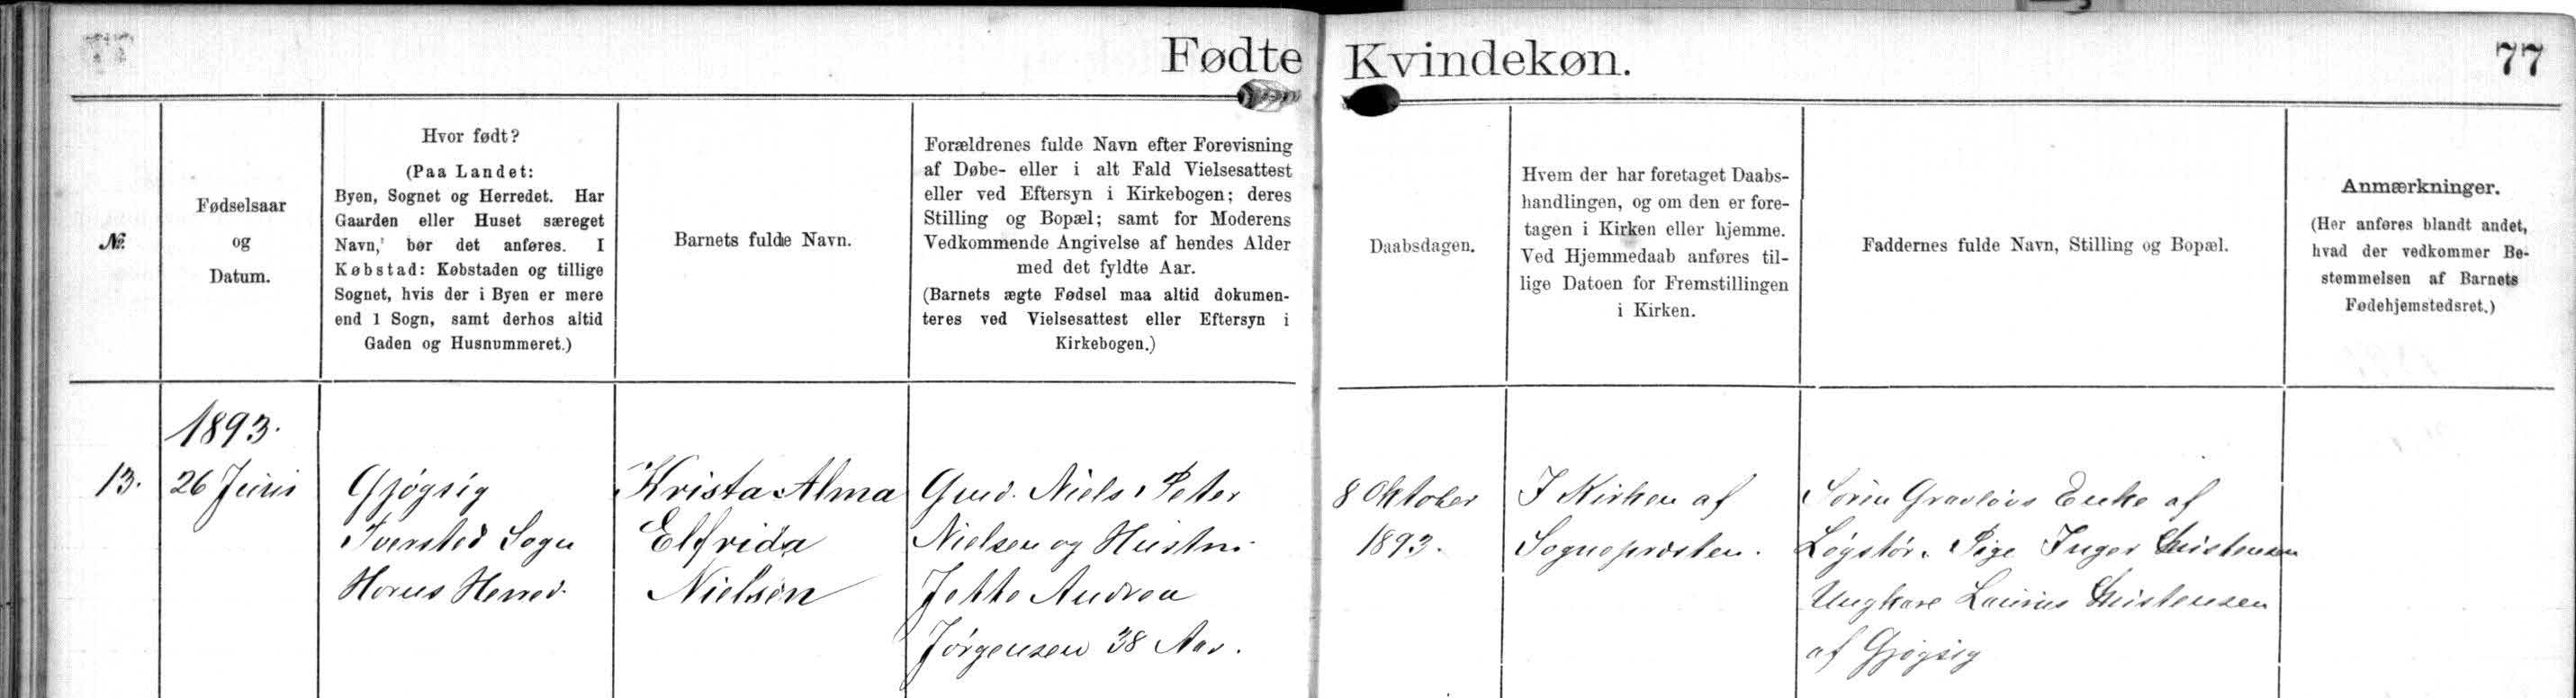 77
Fødte Kvindekøn.
№
Fødselsaar
og
Datum.
Hvor født?
(Paa Landet:
Byen, Sognet og Herredet. Har
Gaarden eller Huset særeget
Navn, bør det anføres. I
Købstad: Købstaden og tillige
Sognet, hvis der i Byen er mere
end 1 Sogn, samt derhos altid
Gaden og Husnummeret.)
Barnets fulde Navn.
Forældrenes fulde Navn efter Forevisning
af Døbe- eller i alt Fald Vielsesattest
eller ved Eftersyn i Kirkebogen; deres
Stilling og Bopæl; samt for Moderens
Vedkommende Angivelse af hendes Alder
med det fyldte Aar.
(Barnets ægte Fødsel maa altid dokumen-
teres ved Vielsesattest eller Eftersyn i
Kirkebogen.)
Daabsdagen.
Hvem der har foretaget Daabs-
handlingen, og om den er fore-
tagen i Kirken eller hjemme.
Ved Hjemmedaab anføres til-
lige Datoen for Fremstillingen
i Kirken.
Faddernes fulde Navn, Stilling og Bopæl.
Anmærkninger.
(Her anføres blandt andet,
hvad der vedkommer Be-
stemmelsen af Barnets
Fødehjemstedsret.)
13.
1893.
26 Juni
Gjøgsig
Tversted Sogn
Horns Herred.
Krista Alma
Elfrida
Nielsen
Gmd. Niels Peter
Nielsen og Hustru
Jette Andrea
Jørgensen 38 Aar.
8 Oktober
1893.
I Kirken af
Sognepræsten.
Søren Gravlevs Enke af
Løgstør. Pige Inger Christensen
Ungkarl Laurius Christensen
af Gjøgsig